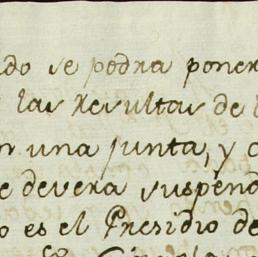 do se podra poner
las resultas de
una junta, y
devera suspend
o es el Presidio de